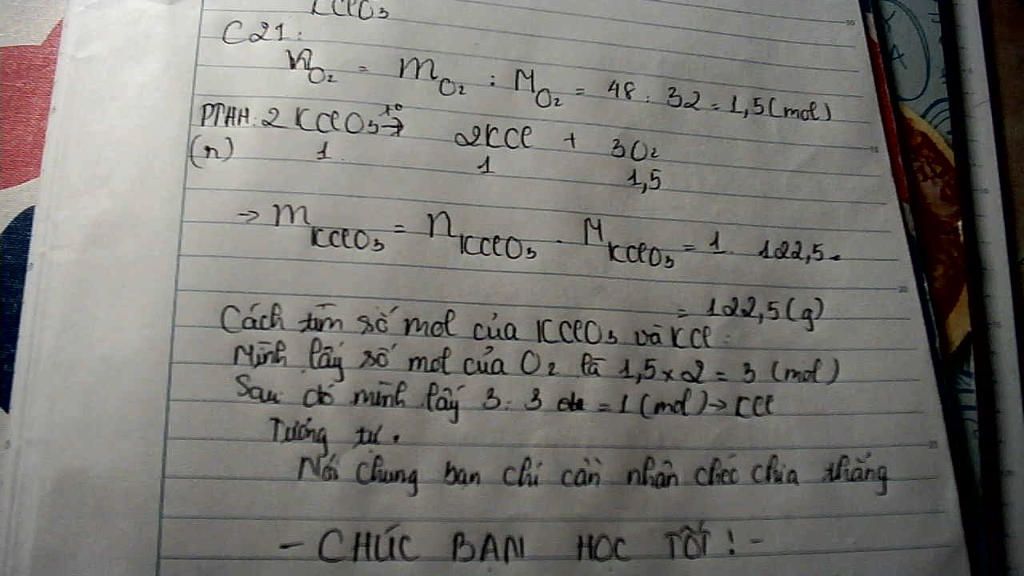 KClO₃
C21:
nO₂ = mO₂ : MO₂ = 48 : 32 = 1,5 (mol)
PTHH: 2KClO₃ t°→ 2KCl + 3O₂
(n) 1 1 1,5
→ mKClO₃ = nKClO₃ . MKClO₃ = 1 . 122,5 =
= 122,5 (g)
Cách tìm số mol của KClO₃ và KCl:
Mình lấy số mol của O₂ là 1,5 x 2 = 3 (mol)
Sau đó mình lấy 3 : 3 = 1 (mol) → KCl
Tương tự.
Nói chung bạn chỉ cần nhân chéo chia thẳng
- CHÚC BẠN HỌC TỐT! -